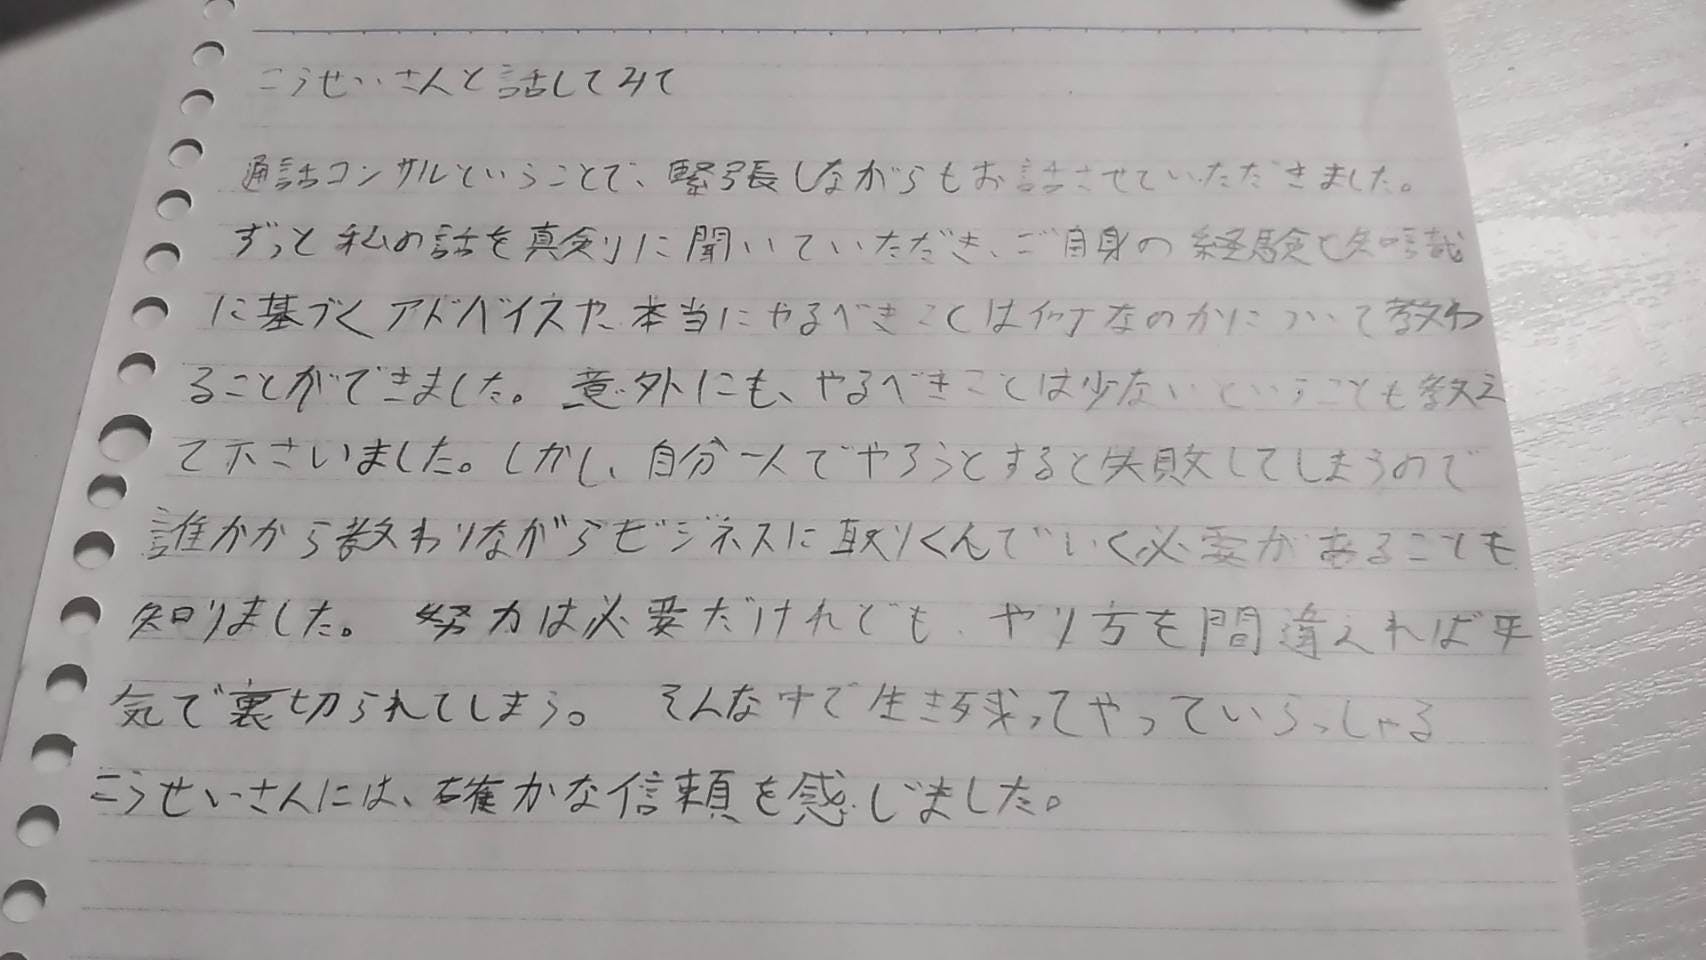 こうせいさんと話してみて
通話コンサルということで、緊張しながらもお話させていただきました。
ずっと私の話を真剣に聞いていただき、ご自身の経験と知識
に基づくアドバイスや、本当にやるべきことは何なのかについて教わ
ることができました。意外にも、やるべきことは少ないということも教え
て下さいました。しかし、自分一人でやろうとすると失敗してしまうので
誰かから教わりながらビジネスに取りくんでいく必要があることも
知りました。努力は必要だけれども、やり方を間違えれば平
気で裏切られてしまう。そんな中で生き残ってやっていらっしゃる
こうせいさんには、確かな信頼を感じました。